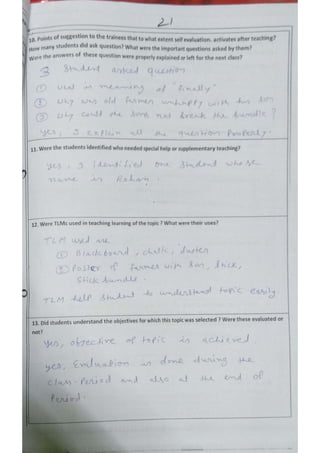 21
10. Points of suggestion to the trainees that to what extent self evaluation. activates after teaching?
How many students did ask question? What were the important questions asked by them?
Were the answers of these question were properly explained or left for the next class?
3 Student asked question
① what is meaning of "Finally"
② Why was old farmer unhappy with his son
③ Why could the sons not break the bundle?
Yes, I explain all the question Properly.
11. Were the students identified who needed special help or supplementary teaching?
Yes, I identified one student whose
name is Rehan.
12. Were TLMs used in teaching learning of the topic? What were their uses?
TLM used are
① Blackboard, chalk, duster
② Poster of farmer with son, stick,
Stick bundle.
TLM help student to understand topic easily
13. Did students understand the objectives for which this topic was selected? Were these evaluated or
not?
Yes, objective of topic is achieved
yes, Evaluation is done during the
class-Period and also at the end of
Period.